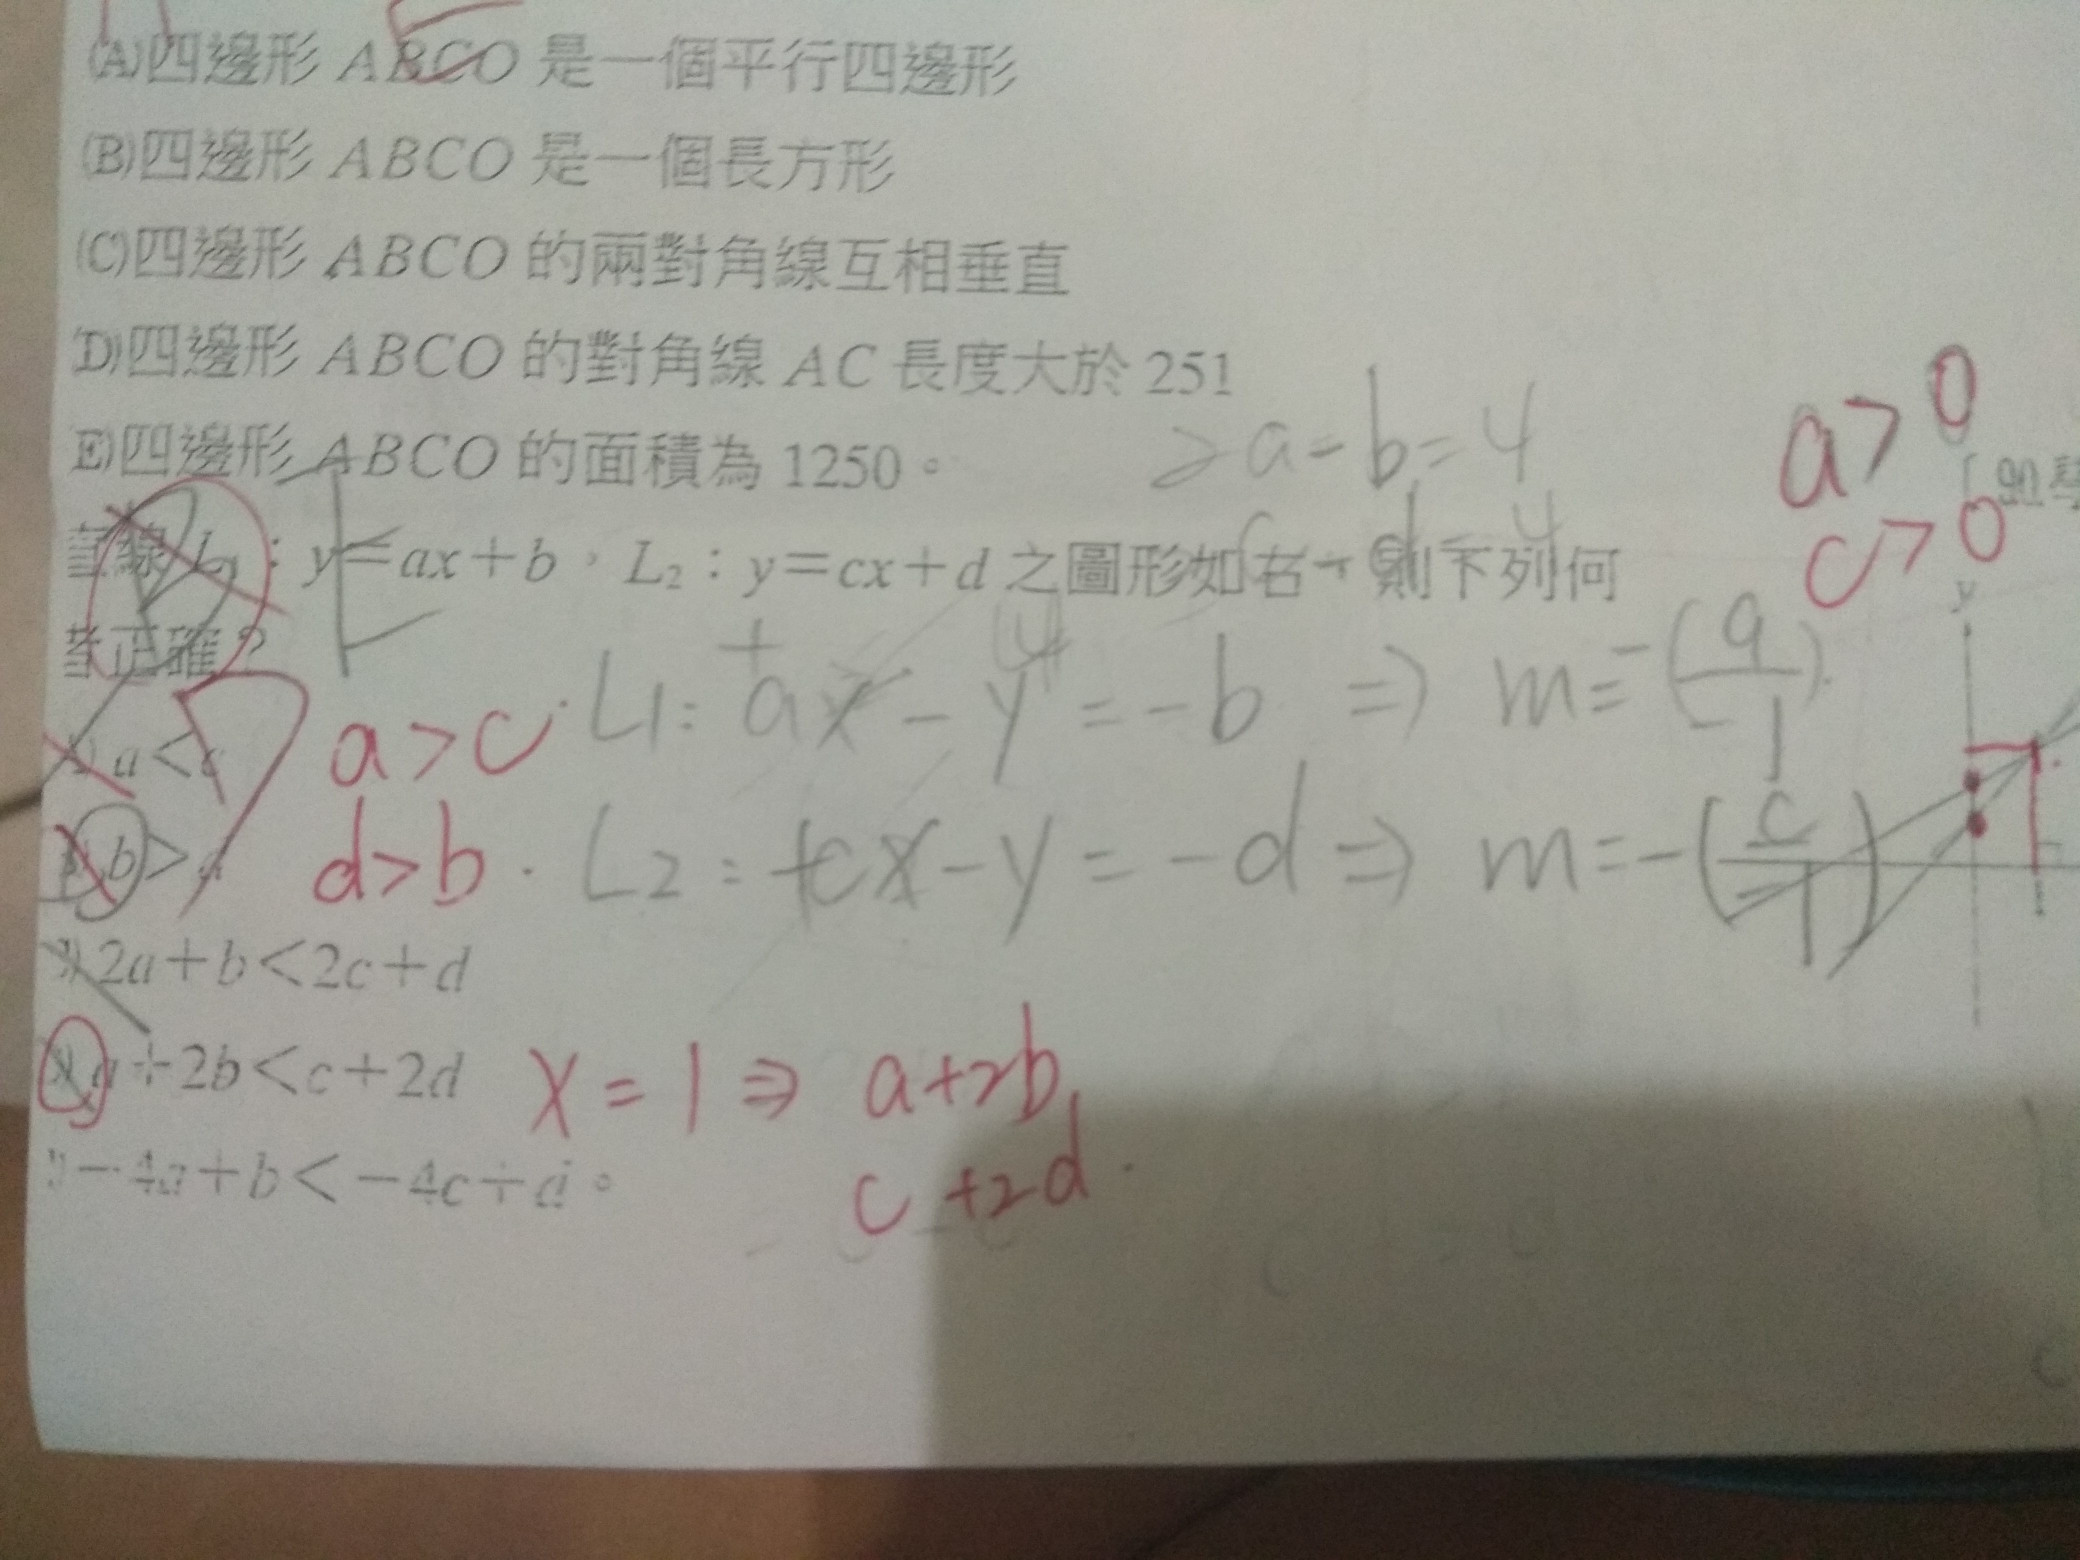 (A)四邊形 ABCO 是一個平行四邊形
(B)四邊形 ABCO 是一個長方形
(C)四邊形 ABCO 的兩對角線互相垂直
(D)四邊形 ABCO 的對角線 AC 長度大於 251
(E)四邊形 ABCO 的面積為 1250。
2a=b=4
a>0
c>0
線 L₁：y=ax+b，L₂：y=cx+d 之圖形如右，則下列何
者正確？
y
a<c
a>c
L1: ax-y=-b ⇒ m=-(a/-1)
b>d
d>b
L2: +cx-y=-d ⇒ m=-(c/-1)
2a+b<2c+d
a+2b<c+2d
x=1 ⇒ a+2b
c+2d
-4a+b<-4c+d。